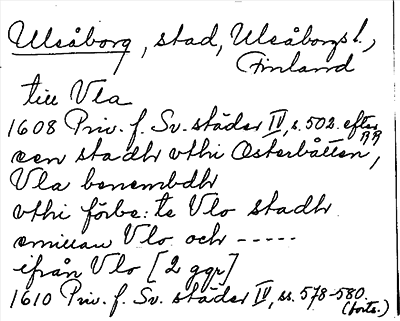 Uleåborg, stad, Uleåborgs l.,
Finland
till Vla
1608 Priv. f. Sv. städer IV, s. 502. efter RR
een stadh vthi Österbåtten,
Vla benembdh
vthi förbe:te Vlo stadh
emillan Vlo och -----
ifrån Vlo [2 ggr]
1610 Priv. f. Sv. städer IV, ss. 578-580.
(forts.)